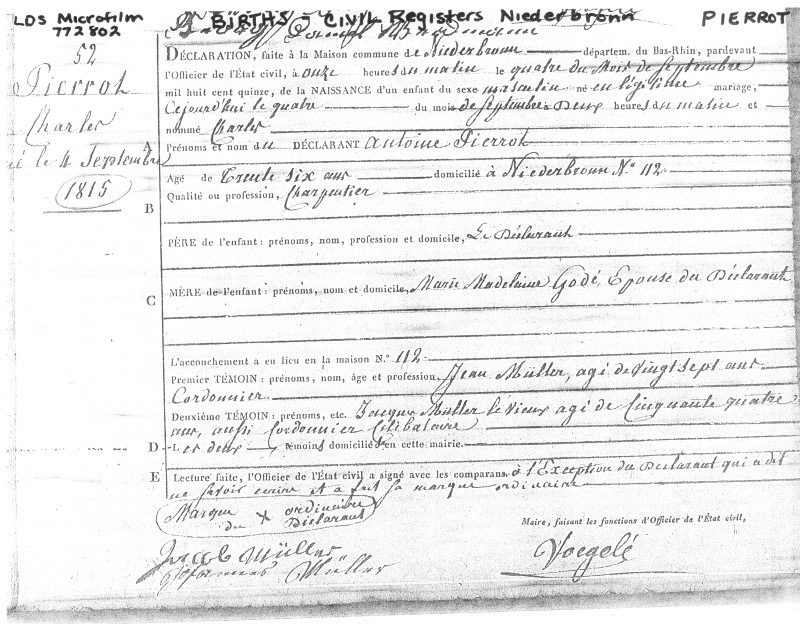 LDS Microfilm
772802
BIRTHS - Civil Registers Niederbronn
PIERROT
52
Pierrot
Charles
né le 4 Septembre
1815
DÉCLARATION, faite à la Maison commune de Niederbronn départem. du Bas-Rhin, pardevant
l'Officier de l'État civil, à onze heures du matin le quatre du Mois de Septembre
mil huit cent quinze, de la NAISSANCE d'un enfant du sexe masculin né en légitime mariage,
Cejourd'hui le quatre du mois de Septembre Deux heures du matin et
nommé Charles
A
Prénoms et nom du DÉCLARANT Antoine Pierrot
Agé de Trente six ans domicilié à Niederbronn N.° 112
Qualité ou profession, Charpentier
B
PÈRE de l'enfant : prénoms, nom, profession et domicile, Le Déclarant
C
MÈRE de l'enfant : prénoms, nom et domicile, Marie Madelaine Godé, Epouse du Déclarant
L'accouchement a eu lieu en la maison N.° 112
Premier TÉMOIN : prénoms, nom, âge et profession, Jean Müller, agé de vingt sept ans
Cordonnier
Deuxième TÉMOIN : prénoms, etc. Jacques Müller le vieux agé de Cinquante quatre
ans, aussi Cordonnier Célibataire
D
Les deux témoins domiciliés en cette mairie.
E
Lecture faite, l'Officier de l'État civil a signé avec les comparans à l'Exception du Déclarant qui a dit
ne savoir écrire et a fait sa marque ordinaire
Marque X ordinaire
du Déclarant
Maire, faisant les fonctions d'Officier de l'État civil,
Jacob Müller
Voegelé
Müller